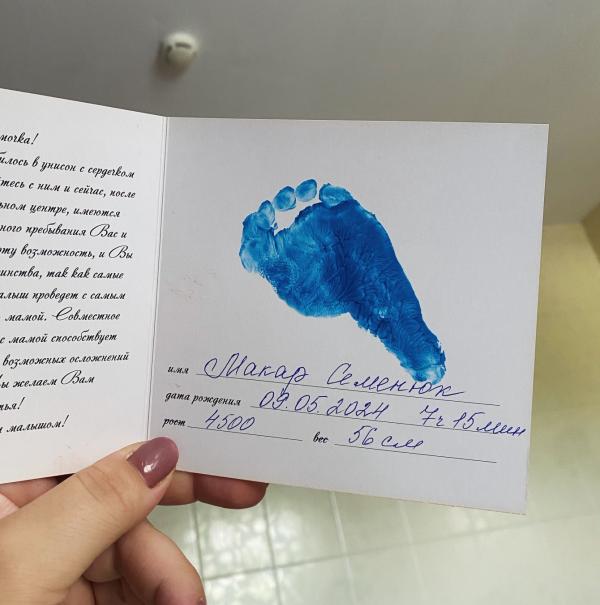 мочка!
билось в унисон с сердечком
йтесь с ним и сейчас, после
льном центре, имеются
ного пребывания Вас и
оту возможность, и Вы
инства, так как самые
алыш проведет с самым
мамой. Совместное
с мамой способствует
возможных осложнений
ы желаем Вам
тья!
м малышом!
имя Макар Семенюк
дата рождения 09.05.2024 7ч 15мин
рост 4500 вес 56 см